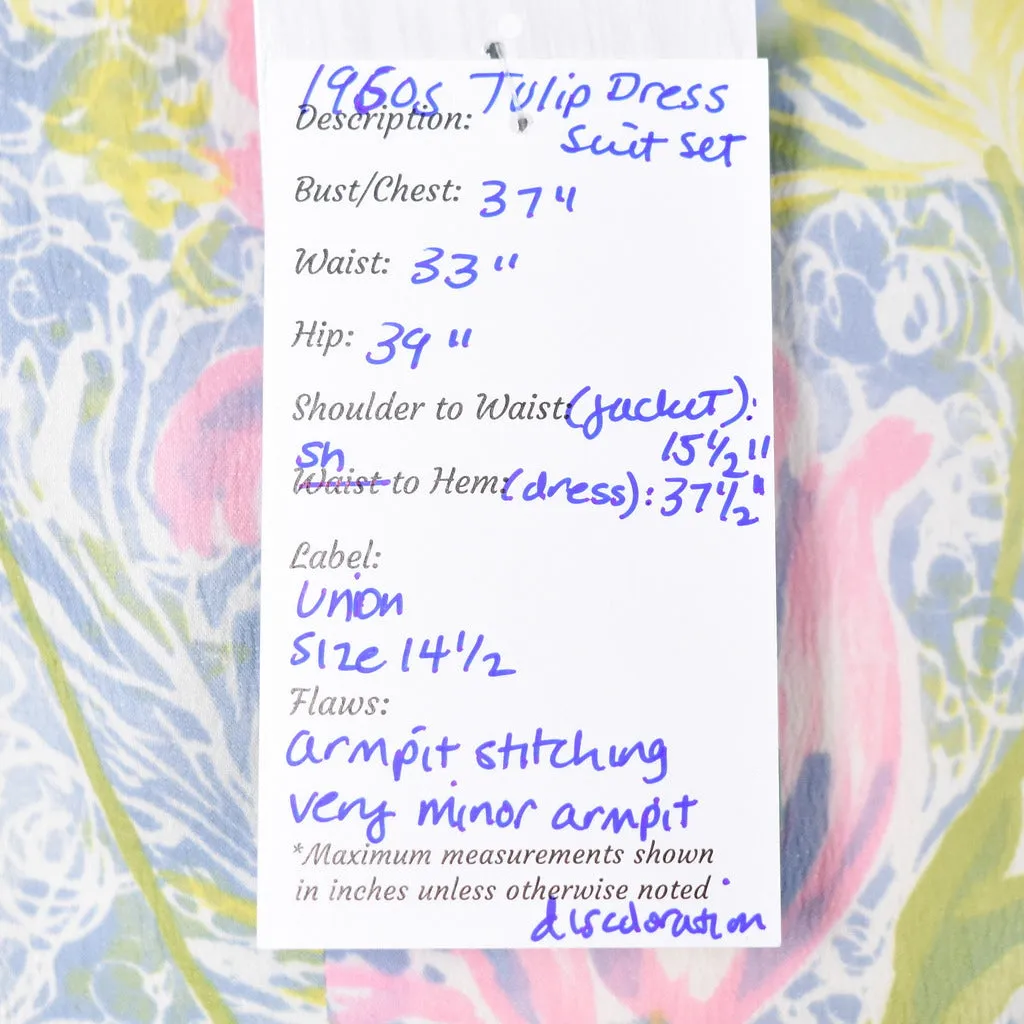 1960s Tulip Dress
Description:
suit set
Bust/Chest: 37"
Waist: 33"
Hip: 39"
Shoulder to Waist: (jacket):
15 1/2"
sh
Waist to Hem: (dress): 37 1/2"
Label:
Union
Size 14 1/2
Flaws:
armpit stitching
very minor armpit
*Maximum measurements shown
in inches unless otherwise noted
discoloration